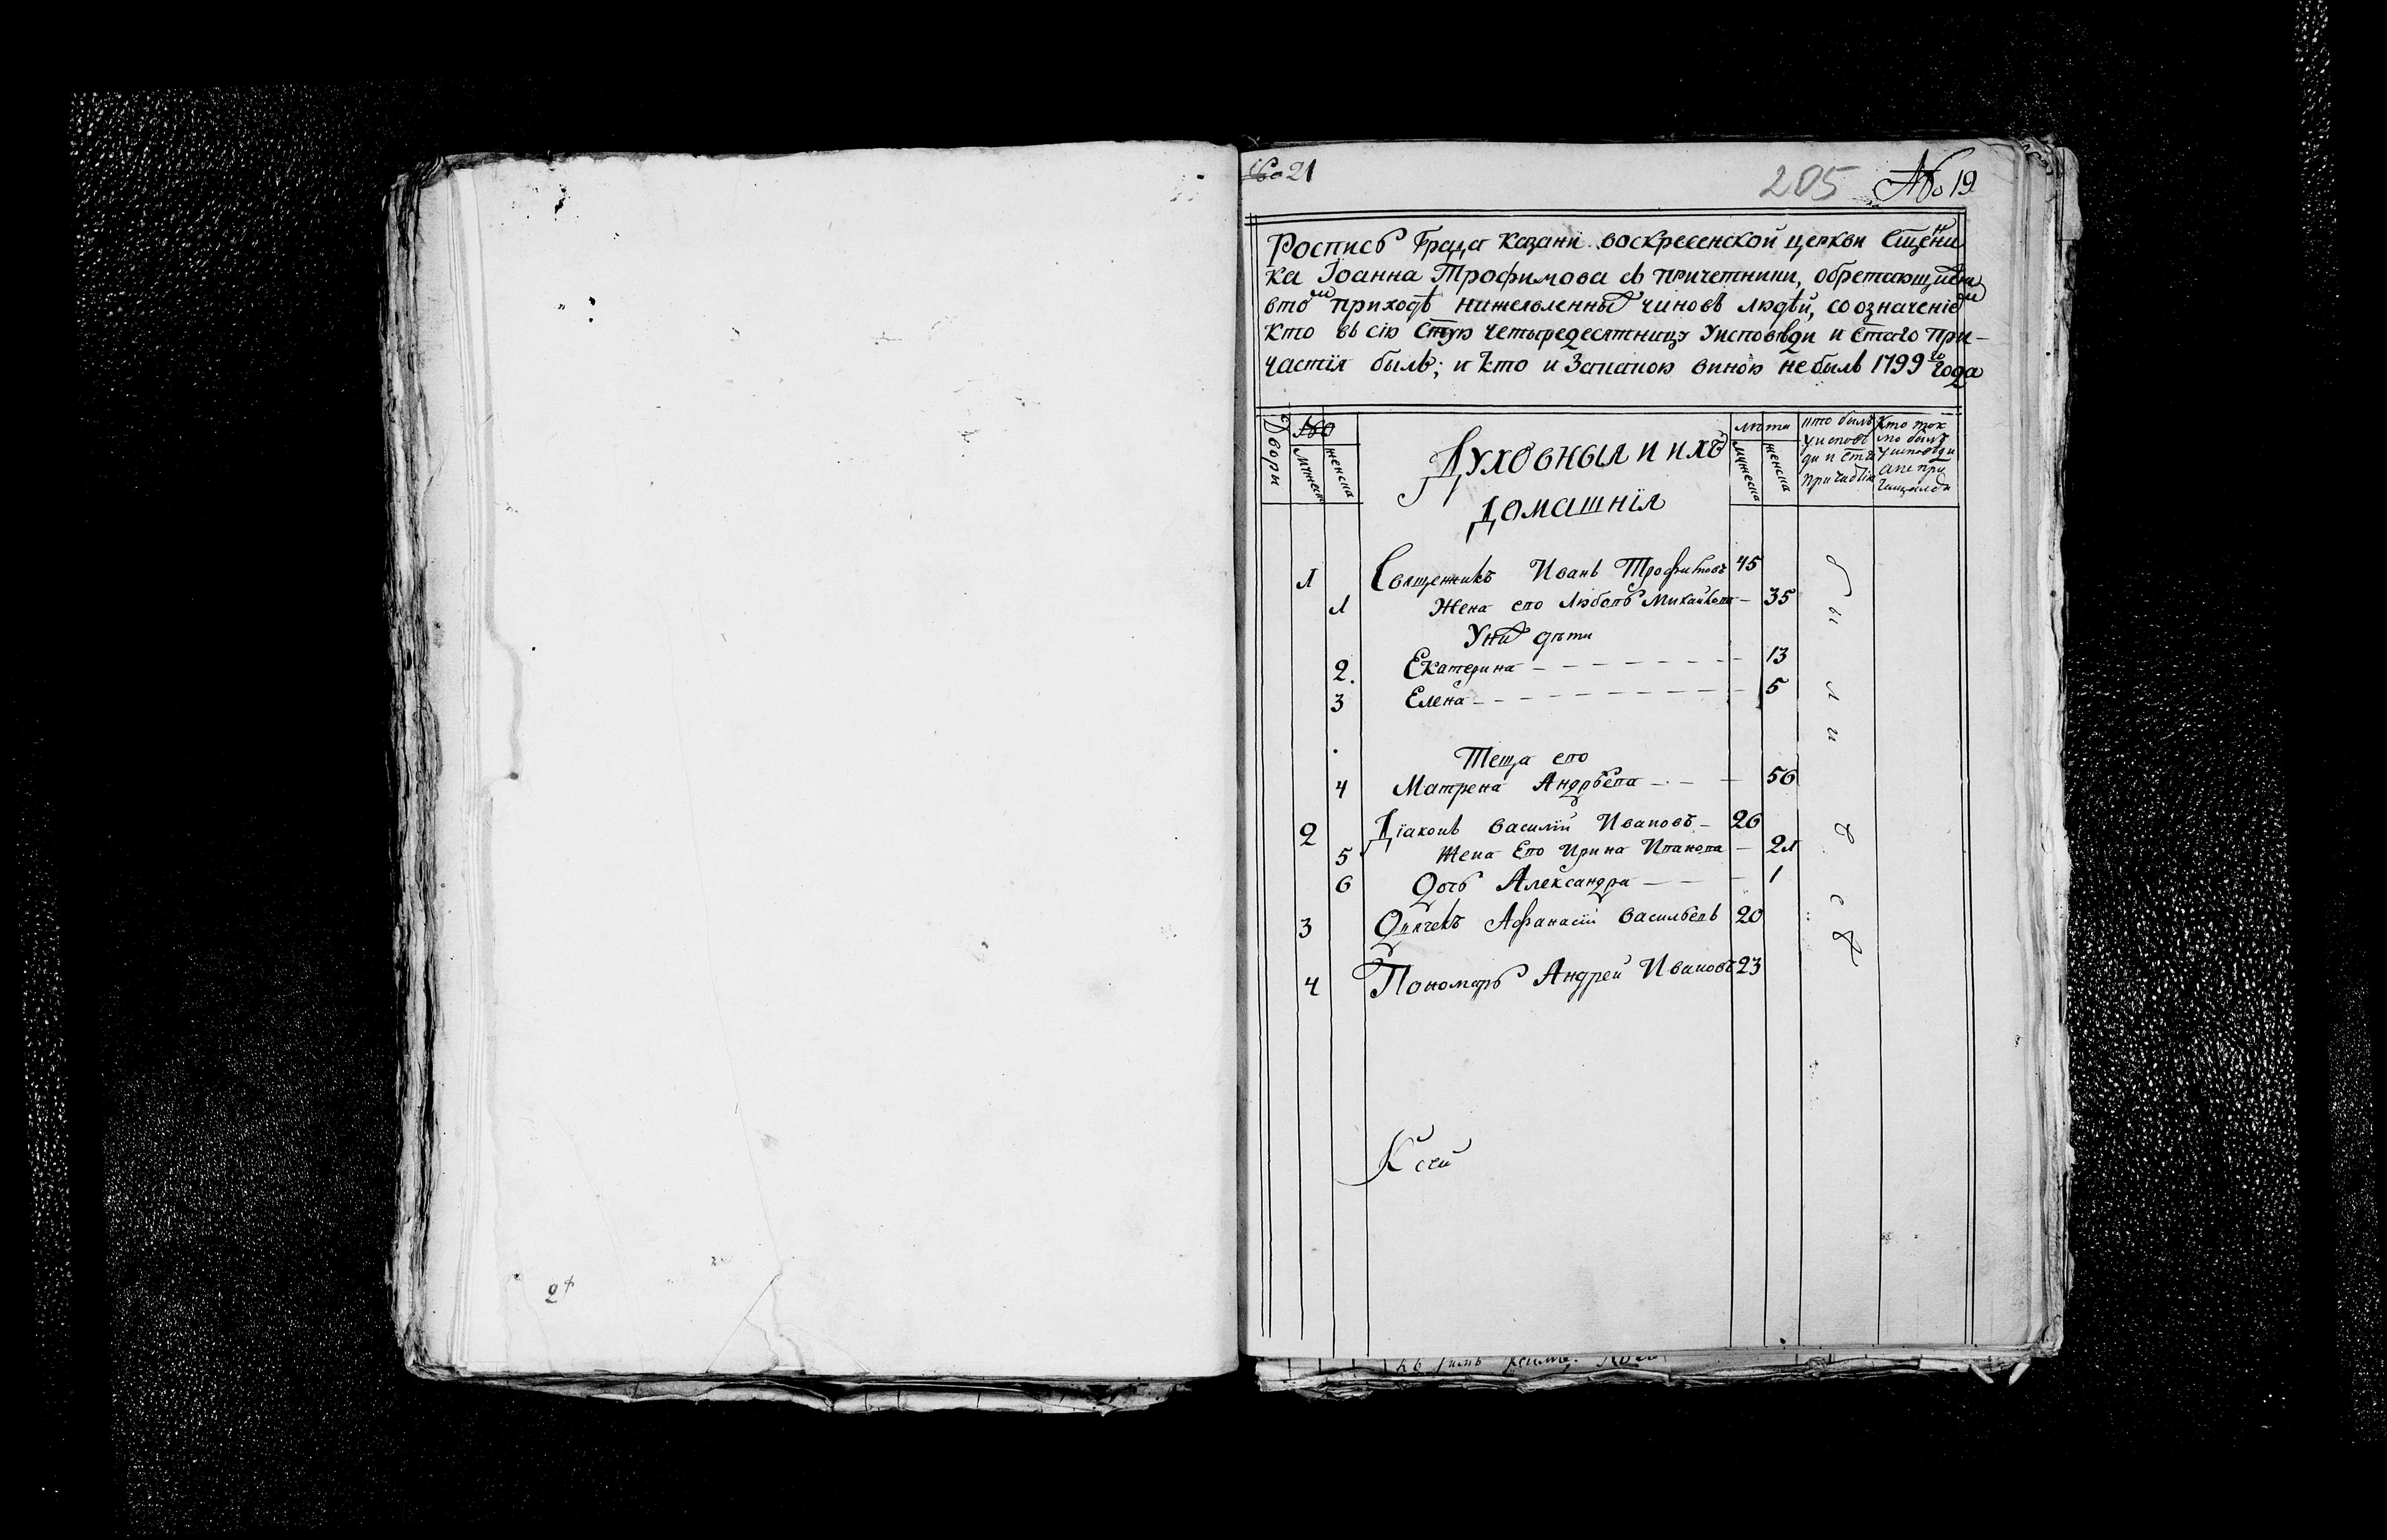 № 21
205 № 19
Росписъ Града Казани воскресенской церкви Сщенни
ка Іоанна Трофимова съ причетники, обретающихся
втом приходѣ нижеявленных чиновъ людѣй, со означеніем
кто въ сію Стую четыредесятницу Уисповѣди и Стаго При-
частія былъ; и кто и Запакою виною небылъ 1799го Года
Дворы
№
мужеска
женска
Духовныя и ихъ
домашнія
лѣта
мужеска
женска
кто былъ
Уисповѣ
ди и Ста
Причастія
Кто ток
мо былъ
Уисповѣди
Анепри
чащался
1 Священникъ Иванъ Трофимовъ 45
1 Жена его Любовь Михайлова — 35
Уних дѣти
2. Екатерина — 13
3 Елена — 5
Теща его
4 Матрена Андрѣева — 56
2 Діаконъ Василій Ивановъ — 26
5 Жена Его Ирина Иванова — 21
6 Дочь Александра — 1
3 Дьячекъ Афанасій Васильевъ 20
4 Пономарь Андрей Ивановъ 23
были
всѣ
К сей
2